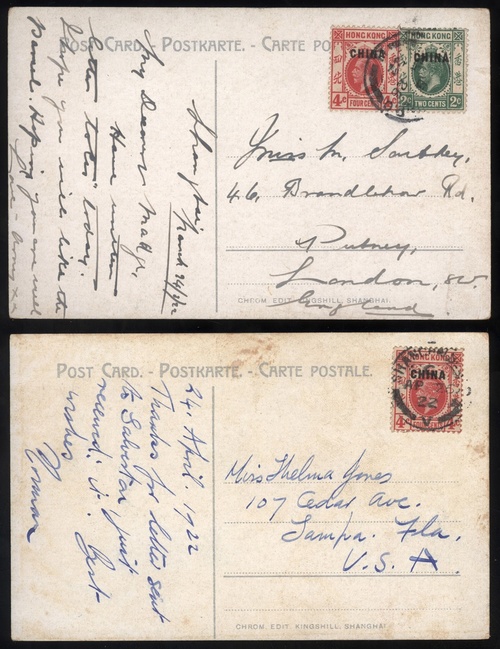 Post Card. - Postkarte. - Carte po
HONG KONG
CHINA
4c FOUR CE
HONG KONG
CHINA
2c TWO CENTS 2c
Shanghai
March 24/22
My Dearest Madge,
Have written
letter to les today.
I hope you will like the
Hoping you are well
Love
Miss M.
46, Rd.
Putney,
London, SW.
England
CHROM. EDIT. KINGSHILL, SHANGHAI.
Post Card. - Postkarte. - Carte postale.
HONG KONG
CHINA
4c
22
24. April. 1922
Thanks for letter sent
to just
received it. Best
wishes
Norman
Miss Thelma Jones
107 Cedar Ave.
Tampa. Fla.
U.S.A.
CHROM. EDIT. KINGSHILL, SHANGHAI